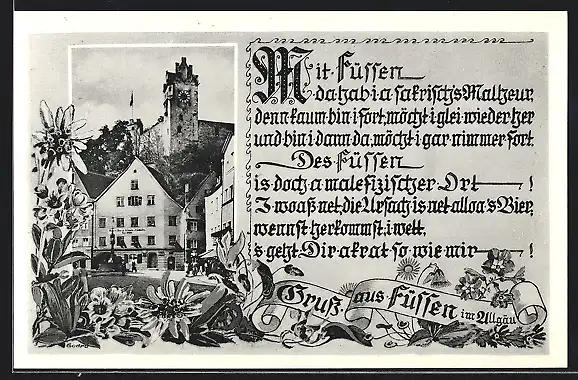 Mit Füssen
da hab i a sakrisch's Malheur,
denn kaum bin i fort, möcht i glei wieder her
und bin i dann da, möcht i gar nimmer fort.
Des Füssen
is doch a malefizischer Ort !
I woaß net, die Ursach is net alloa's Bier,
wennst herkommst, i wett,
s geht Dir akrat so wie mir !
Gruß aus Füssen im Allgäu